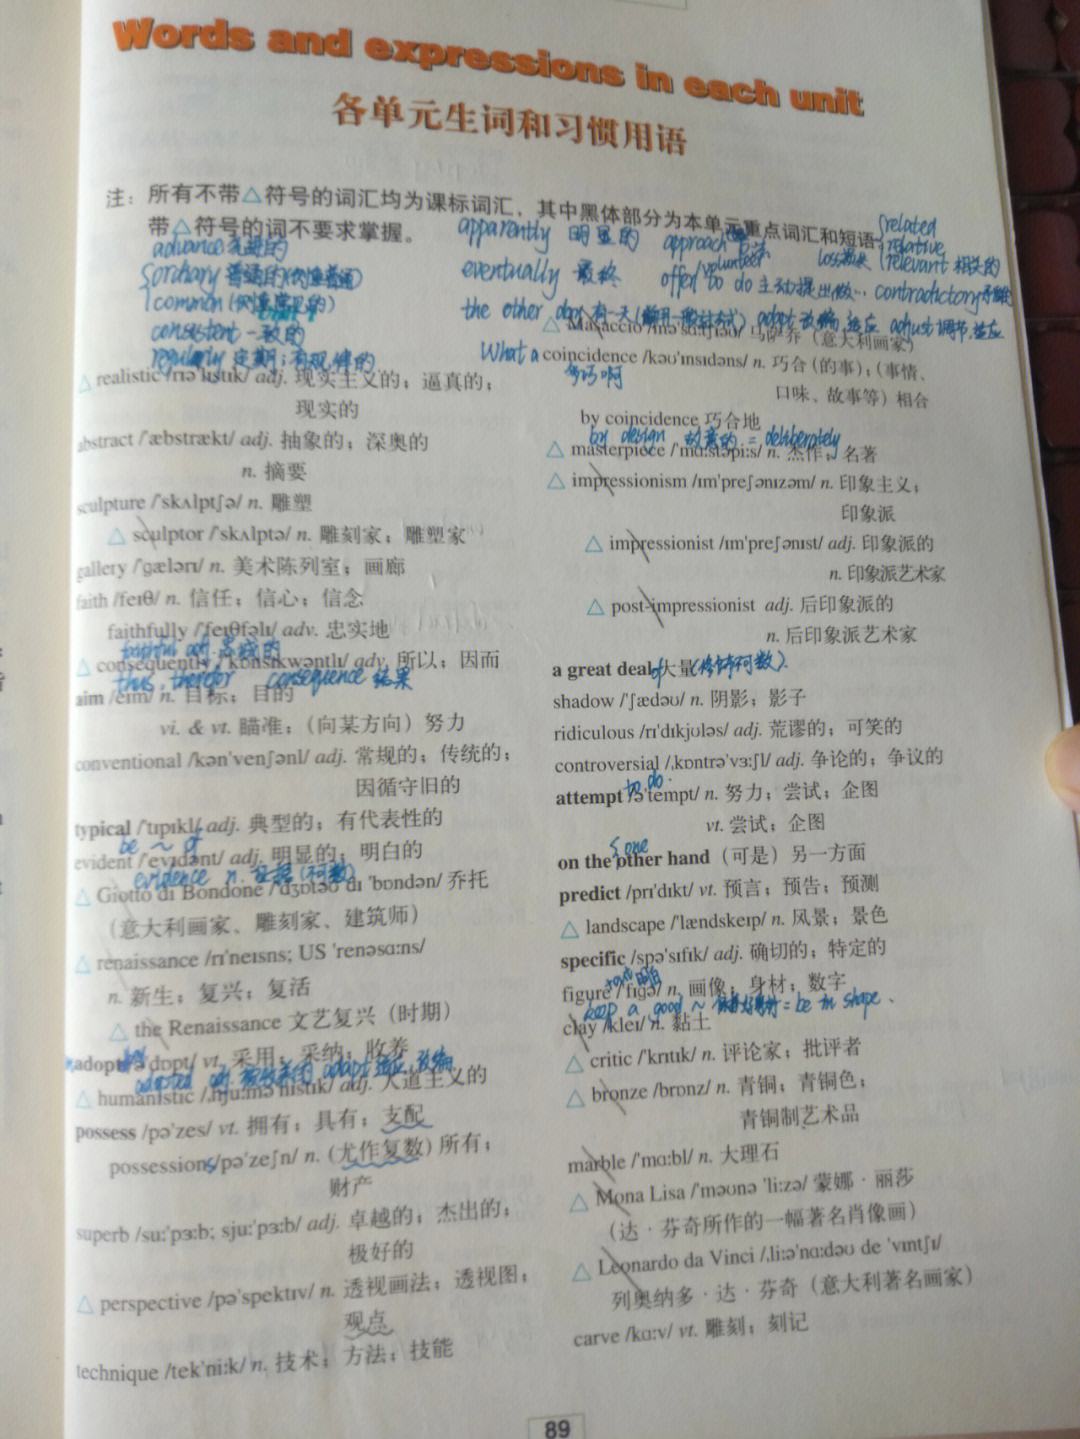 Words and expressions in each unit
各单元生词和习惯用语
注：所有不带△符号的词汇均为课标词汇，其中黑体部分为本单元重点词汇和短语
带△符号的词不要求掌握。
advance 先进的
ordinary 普通的
common
consistent 一致的
regularly 定期；有规律的
△ realistic /rɪə'lɪstɪk/ adj. 现实主义的；逼真的；
现实的
abstract /'æbstrækt/ adj. 抽象的；深奥的
n. 摘要
sculpture /'skʌlptʃə/ n. 雕塑
△ sculptor /'skʌlptə/ n. 雕刻家；雕塑家
gallery /'gælərɪ/ n. 美术陈列室；画廊
faith /feɪθ/ n. 信任；信心；信念
faithfully /'feɪθfəlɪ/ adv. 忠实地
faithful adj. 忠诚的
△ consequently /'kɒnsɪkwəntlɪ/ adv. 所以；因而
thus, therefor consequence 结果
aim /eɪm/ n. 目标；目的
vi. & vt. 瞄准；（向某方向）努力
conventional /kən'venʃənl/ adj. 常规的；传统的；
因循守旧的
typical /'tɪpɪkl/ adj. 典型的；有代表性的
be ~ of
evident /'evɪdənt/ adj. 明显的；明白的
evidence n. 证据(不可数)
△ Giotto di Bondone /'dʒɒtəʊ dɪ 'bɒndən/ 乔托
（意大利画家、雕刻家、建筑师）
△ renaissance /rɪ'neɪsns; US 'renəsɑ:ns/
n. 新生；复兴；复活
△ the Renaissance 文艺复兴（时期）
adopt /ə'dɒpt/ vt. 采用；采纳；收养
adopted adj. adapt 适应,改编
△ humanistic /ˌhju:mə'nɪstɪk/ adj. 人道主义的
possess /pə'zes/ vt. 拥有；具有；支配
possessions /pə'zeʃn/ n. (尤作复数) 所有；
财产
superb /su:'pɜ:b; sju:'pɜ:b/ adj. 卓越的；杰出的；
极好的
△ perspective /pə'spektɪv/ n. 透视画法；透视图；
观点
technique /tek'ni:k/ n. 技术；方法；技能
apparently 明显的 approach 方法
related
relative
relevant 相关的
eventually 最终 volunteer
offer to do 主动提出做… contradictory
the other day 有一天 adapt 改编,适应 adjust 调节,适应
△ Masaccio /mə'sɑ:tʃɪəʊ/ 马萨乔（意大利画家）
What a coincidence /kəʊ'ɪnsɪdəns/ n. 巧合（的事）；（事情、
多巧啊 口味、故事等）相合
by coincidence 巧合地
by design 故意的 = deliberately
△ masterpiece /'mɑ:stəpi:s/ n. 杰作；名著
△ impressionism /ɪm'preʃənɪzəm/ n. 印象主义；
印象派
△ impressionist /ɪm'preʃənɪst/ adj. 印象派的
n. 印象派艺术家
△ post-impressionist adj. 后印象派的
n. 后印象派艺术家
a great deal of 大量(修饰不可数).
shadow /'ʃædəʊ/ n. 阴影；影子
ridiculous /rɪ'dɪkjʊləs/ adj. 荒谬的；可笑的
controversial /ˌkɒntrə'vɜ:ʃl/ adj. 争论的；争议的
to do.
attempt /ə'tempt/ n. 努力；尝试；企图
vt. 尝试；企图
one
on the other hand （可是）另一方面
predict /prɪ'dɪkt/ vt. 预言；预告；预测
△ landscape /'lændskeɪp/ n. 风景；景色
specific /spə'sɪfɪk/ adj. 确切的；特定的
figure /'fɪgə/ n. 画像；身材；数字
keep a good ~ = be in shape
clay /kleɪ/ n. 黏土
△ critic /'krɪtɪk/ n. 评论家；批评者
△ bronze /brɒnz/ n. 青铜；青铜色；
青铜制艺术品
marble /'mɑ:bl/ n. 大理石
△ Mona Lisa /'məʊnə 'li:zə/ 蒙娜·丽莎
（达·芬奇所作的一幅著名肖像画）
△ Leonardo da Vinci /ˌli:ə'nɑ:dəʊ de 'vɪntʃɪ/
列奥纳多·达·芬奇（意大利著名画家）
carve /kɑ:v/ vt. 雕刻；刻记
89